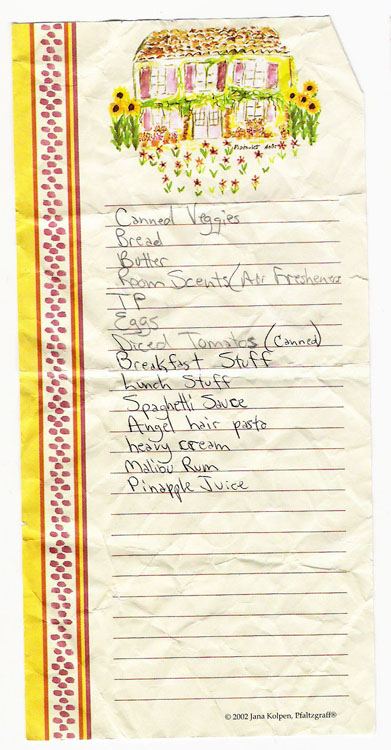 Canned Veggies
Bread
Butter
Room Scents (Air Freshener
TP
Eggs
Diced Tomatos (Canned)
Breakfast Stuff
Lunch Stuff
Spaghetti Sauce
Angel hair pasta
heavy cream
Malibu Rum
Pinapple Juice
© 2002 Jana Kolpen, Pfaltzgraff®